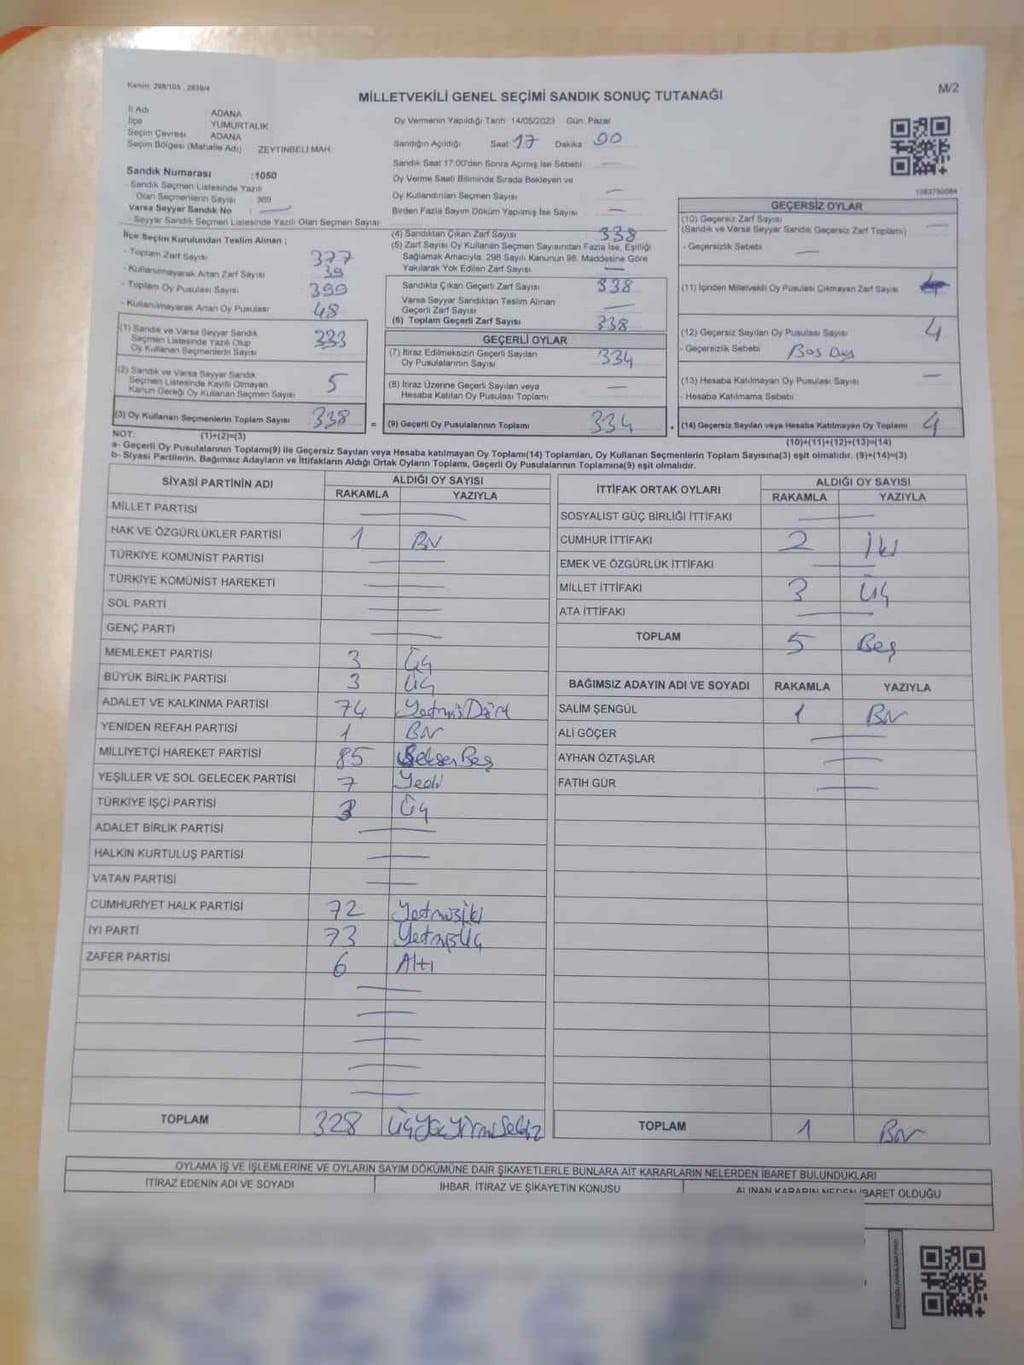 Kanun: 298/105 , 2839/4
M/2
MİLLETVEKİLİ GENEL SEÇİMİ SANDIK SONUÇ TUTANAĞI
İl Adı ADANA
İlçe YUMURTALIK
Seçim Çevresi ADANA
Seçim Bölgesi (Mahalle Adı) ZEYTİNBELİ MAH.
Sandık Numarası :1050
- Sandık Seçmen Listesinde Yazılı
Olan Seçmenlerin Sayısı 369
Varsa Seyyar Sandık No —
- Seyyar Sandık Seçmen Listesinde Yazılı Olan Seçmen Sayısı
Oy Vermenin Yapıldığı Tarih 14/05/2023 Gün: Pazar
Sandığın Açıldığı Saat 17 Dakika 00
Sandık Saat 17:00'den Sonra Açılmış İse Sebebi —
Oy Verme Saati Bitiminde Sırada Bekleyen ve
Oy Kullandırılan Seçmen Sayısı —
Birden Fazla Sayım Döküm Yapılmış İse Sayısı —
İlçe Seçim Kurulundan Teslim Alınan ;
- Toplam Zarf Sayısı 377
- Kullanılmayarak Artan Zarf Sayısı 39
- Toplam Oy Pusulası Sayısı 399
- Kullanılmayarak Artan Oy Pusulası 48
(1) Sandık ve Varsa Seyyar Sandık
Seçmen Listesinde Yazılı Olup
Oy Kullanan Seçmenlerin Sayısı 333
(2) Sandık ve Varsa Seyyar Sandık
Seçmen Listesinde Kayıtlı Olmayan
Kanun Gereği Oy Kullanan Seçmen Sayısı 5
(3) Oy Kullanan Seçmenlerin Toplam Sayısı 338
(1)+(2)=(3)
(4) Sandıktan Çıkan Zarf Sayısı 338
(5) Zarf Sayısı Oy Kullanan Seçmen Sayısından Fazla İse, Eşitliği
Sağlamak Amacıyla, 298 Sayılı Kanunun 98. Maddesine Göre
Yakılarak Yok Edilen Zarf Sayısı —
Sandıkta Çıkan Geçerli Zarf Sayısı 338
Varsa Seyyar Sandıktan Teslim Alınan
Geçerli Zarf Sayısı —
(6) Toplam Geçerli Zarf Sayısı 338
GEÇERLİ OYLAR
(7) İtiraz Edilmeksizin Geçerli Sayılan
Oy Pusulalarının Sayısı 334
(8) İtiraz Üzerine Geçerli Sayılan veya
Hesaba Katılan Oy Pusulası Toplamı —
= (9) Geçerli Oy Pusulalarının Toplamı 334 +
GEÇERSİZ OYLAR
(10) Geçersiz Zarf Sayısı
(Sandık ve Varsa Seyyar Sandık Geçersiz Zarf Toplamı) —
- Geçersizlik Sebebi —
(11) İçinden Milletvekili Oy Pusulası Çıkmayan Zarf Sayısı
(12) Geçersiz Sayılan Oy Pusulası Sayısı 4
- Geçersizlik Sebebi Boş Oy
(13) Hesaba Katılmayan Oy Pusulası Sayısı —
- Hesaba Katılmama Sebebi
(14) Geçersiz Sayılan veya Hesaba Katılmayan Oy Toplamı 4
(10)+(11)+(12)+(13)=(14)
NOT:
a- Geçerli Oy Pusulalarının Toplamı(9) ile Geçersiz Sayılan veya Hesaba katılmayan Oy Toplamı(14) Toplamları, Oy Kullanan Seçmenlerin Toplam Sayısına(3) eşit olmalıdır. (9)+(14)=(3)
b- Siyasi Partilerin, Bağımsız Adayların ve İttifakların Aldığı Ortak Oyların Toplamı, Geçerli Oy Pusulalarının Toplamına(9) eşit olmalıdır.
SİYASİ PARTİNİN ADI ALDIĞI OY SAYISI
RAKAMLA YAZIYLA
MİLLET PARTİSİ —
HAK VE ÖZGÜRLÜKLER PARTİSİ 1 Bir
TÜRKİYE KOMÜNİST PARTİSİ —
TÜRKİYE KOMÜNİST HAREKETİ —
SOL PARTİ —
GENÇ PARTİ —
MEMLEKET PARTİSİ 3 Üç
BÜYÜK BİRLİK PARTİSİ 3 Üç
ADALET VE KALKINMA PARTİSİ 74 YetmişDört
YENİDEN REFAH PARTİSİ 1 Bir
MİLLİYETÇİ HAREKET PARTİSİ 85 SeksenBeş
YEŞİLLER VE SOL GELECEK PARTİSİ 7 Yedi
TÜRKİYE İŞÇİ PARTİSİ 3 Üç
ADALET BİRLİK PARTİSİ —
HALKIN KURTULUŞ PARTİSİ —
VATAN PARTİSİ —
CUMHURİYET HALK PARTİSİ 72 Yetmişiki
İYİ PARTİ 73 YetmişÜç
ZAFER PARTİSİ 6 Altı
TOPLAM 328 ÜçYüzYirmiSekiz
İTTİFAK ORTAK OYLARI ALDIĞI OY SAYISI
RAKAMLA YAZIYLA
SOSYALİST GÜÇ BİRLİĞİ İTTİFAKI —
CUMHUR İTTİFAKI 2 İki
EMEK VE ÖZGÜRLÜK İTTİFAKI —
MİLLET İTTİFAKI 3 Üç
ATA İTTİFAKI —
TOPLAM 5 Beş
BAĞIMSIZ ADAYIN ADI VE SOYADI RAKAMLA YAZIYLA
SALİM ŞENGÜL 1 Bir
ALİ GÖÇER —
AYHAN ÖZTAŞLAR —
FATİH GÜR —
TOPLAM 1 Bir
OYLAMA İŞ VE İŞLEMLERİNE VE OYLARIN SAYIM DÖKÜMÜNE DAİR ŞİKAYETLERLE BUNLARA AİT KARARLARIN NELERDEN İBARET BULUNDUKLARI
İTİRAZ EDENİN ADI VE SOYADI İHBAR, İTİRAZ VE ŞİKAYETİN KONUSU ALINAN KARARIN NEDEN İBARET OLDUĞU